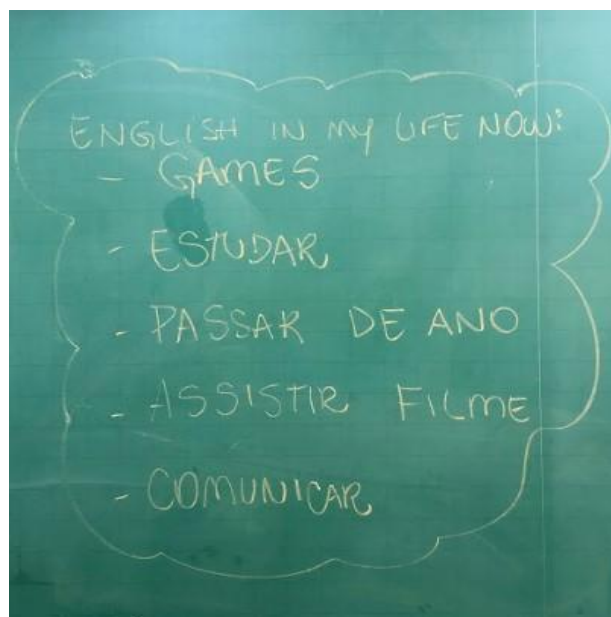 ENGLISH IN MY LIFE NOW:
- GAMES
- ESTUDAR
- PASSAR DE ANO
- ASSISTIR FILME
- COMUNICAR